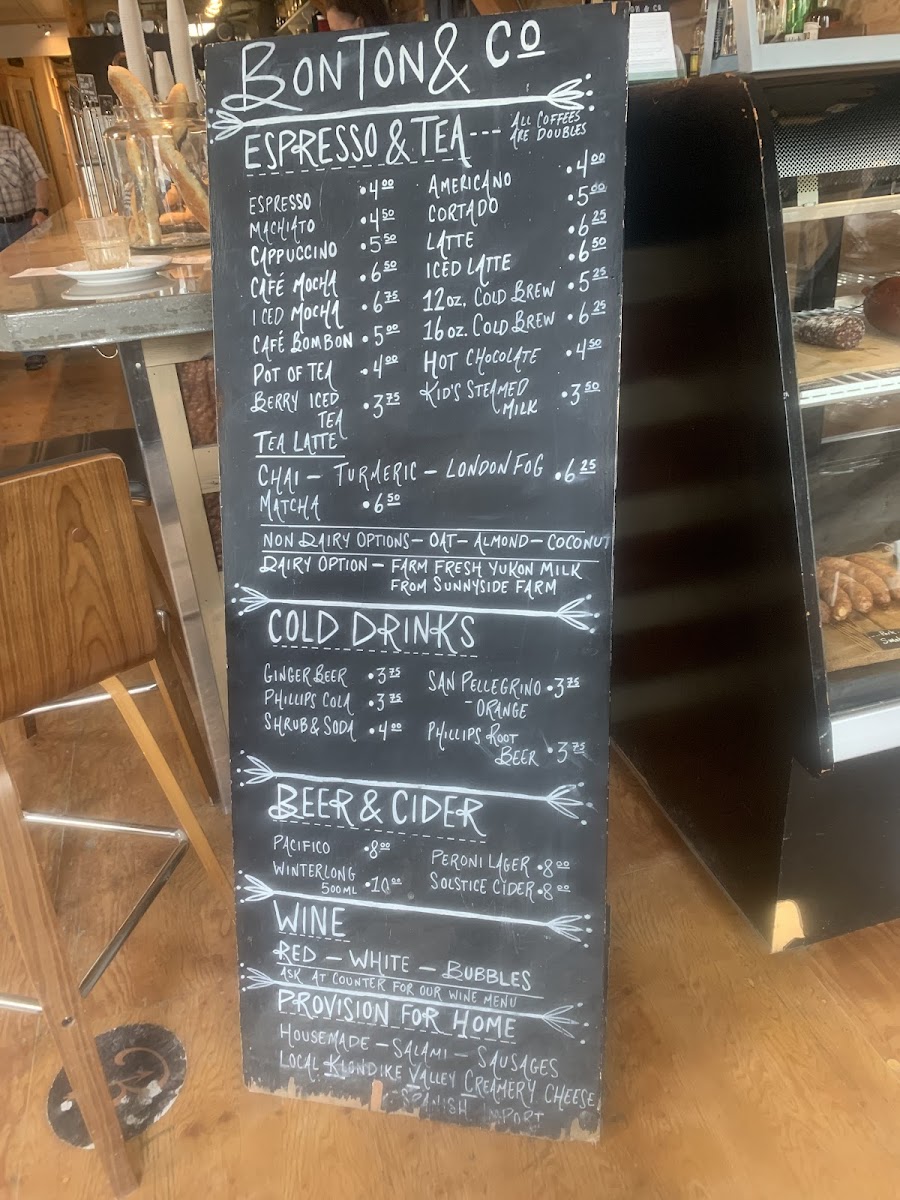 BONTON & CO
ESPRESSO & TEA --- ALL COFFEES
ARE DOUBLES
ESPRESSO •4.00
MACHIATO •4.50
CAPPUCCINO •5.50
CAFÉ MOCHA •6.50
ICED MOCHA •6.75
CAFÉ BOMBON •5.00
POT OF TEA •4.00
BERRY ICED
TEA •3.75
AMERICANO •4.00
CORTADO •5.00
LATTE •6.25
ICED LATTE •6.50
12oz. COLD BREW •5.25
16oz. COLD BREW •6.25
HOT CHOCOLATE •4.50
KID'S STEAMED
MILK •3.50
TEA LATTE
CHAI – TURMERIC – LONDON FOG •6.25
MATCHA •6.50
NON DAIRY OPTIONS – OAT – ALMOND – COCONUT
DAIRY OPTION – FARM FRESH YUKON MILK
FROM SUNNYSIDE FARM
COLD DRINKS
GINGER BEER •3.75
PHILLIPS COLA •3.75
SHRUB & SODA •4.00
SAN PELLEGRINO •3.75
- ORANGE
PHILLIPS ROOT
BEER •3.75
BEER & CIDER
PACIFICO •8.00
WINTERLONG
500ML •10.00
PERONI LAGER •8.00
SOLSTICE CIDER •8.00
WINE
RED – WHITE – BUBBLES
ASK AT COUNTER FOR OUR WINE MENU
PROVISION FOR HOME
HOUSEMADE – SALAMI – SAUSAGES
LOCAL KLONDIKE VALLEY CREAMERY CHEESE
SPANISH IMPORT